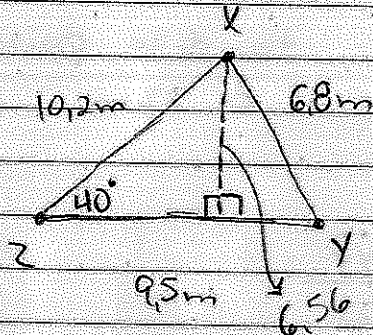 X
10,2m
6,8m
40°
Z
Y
9,5m
6,56